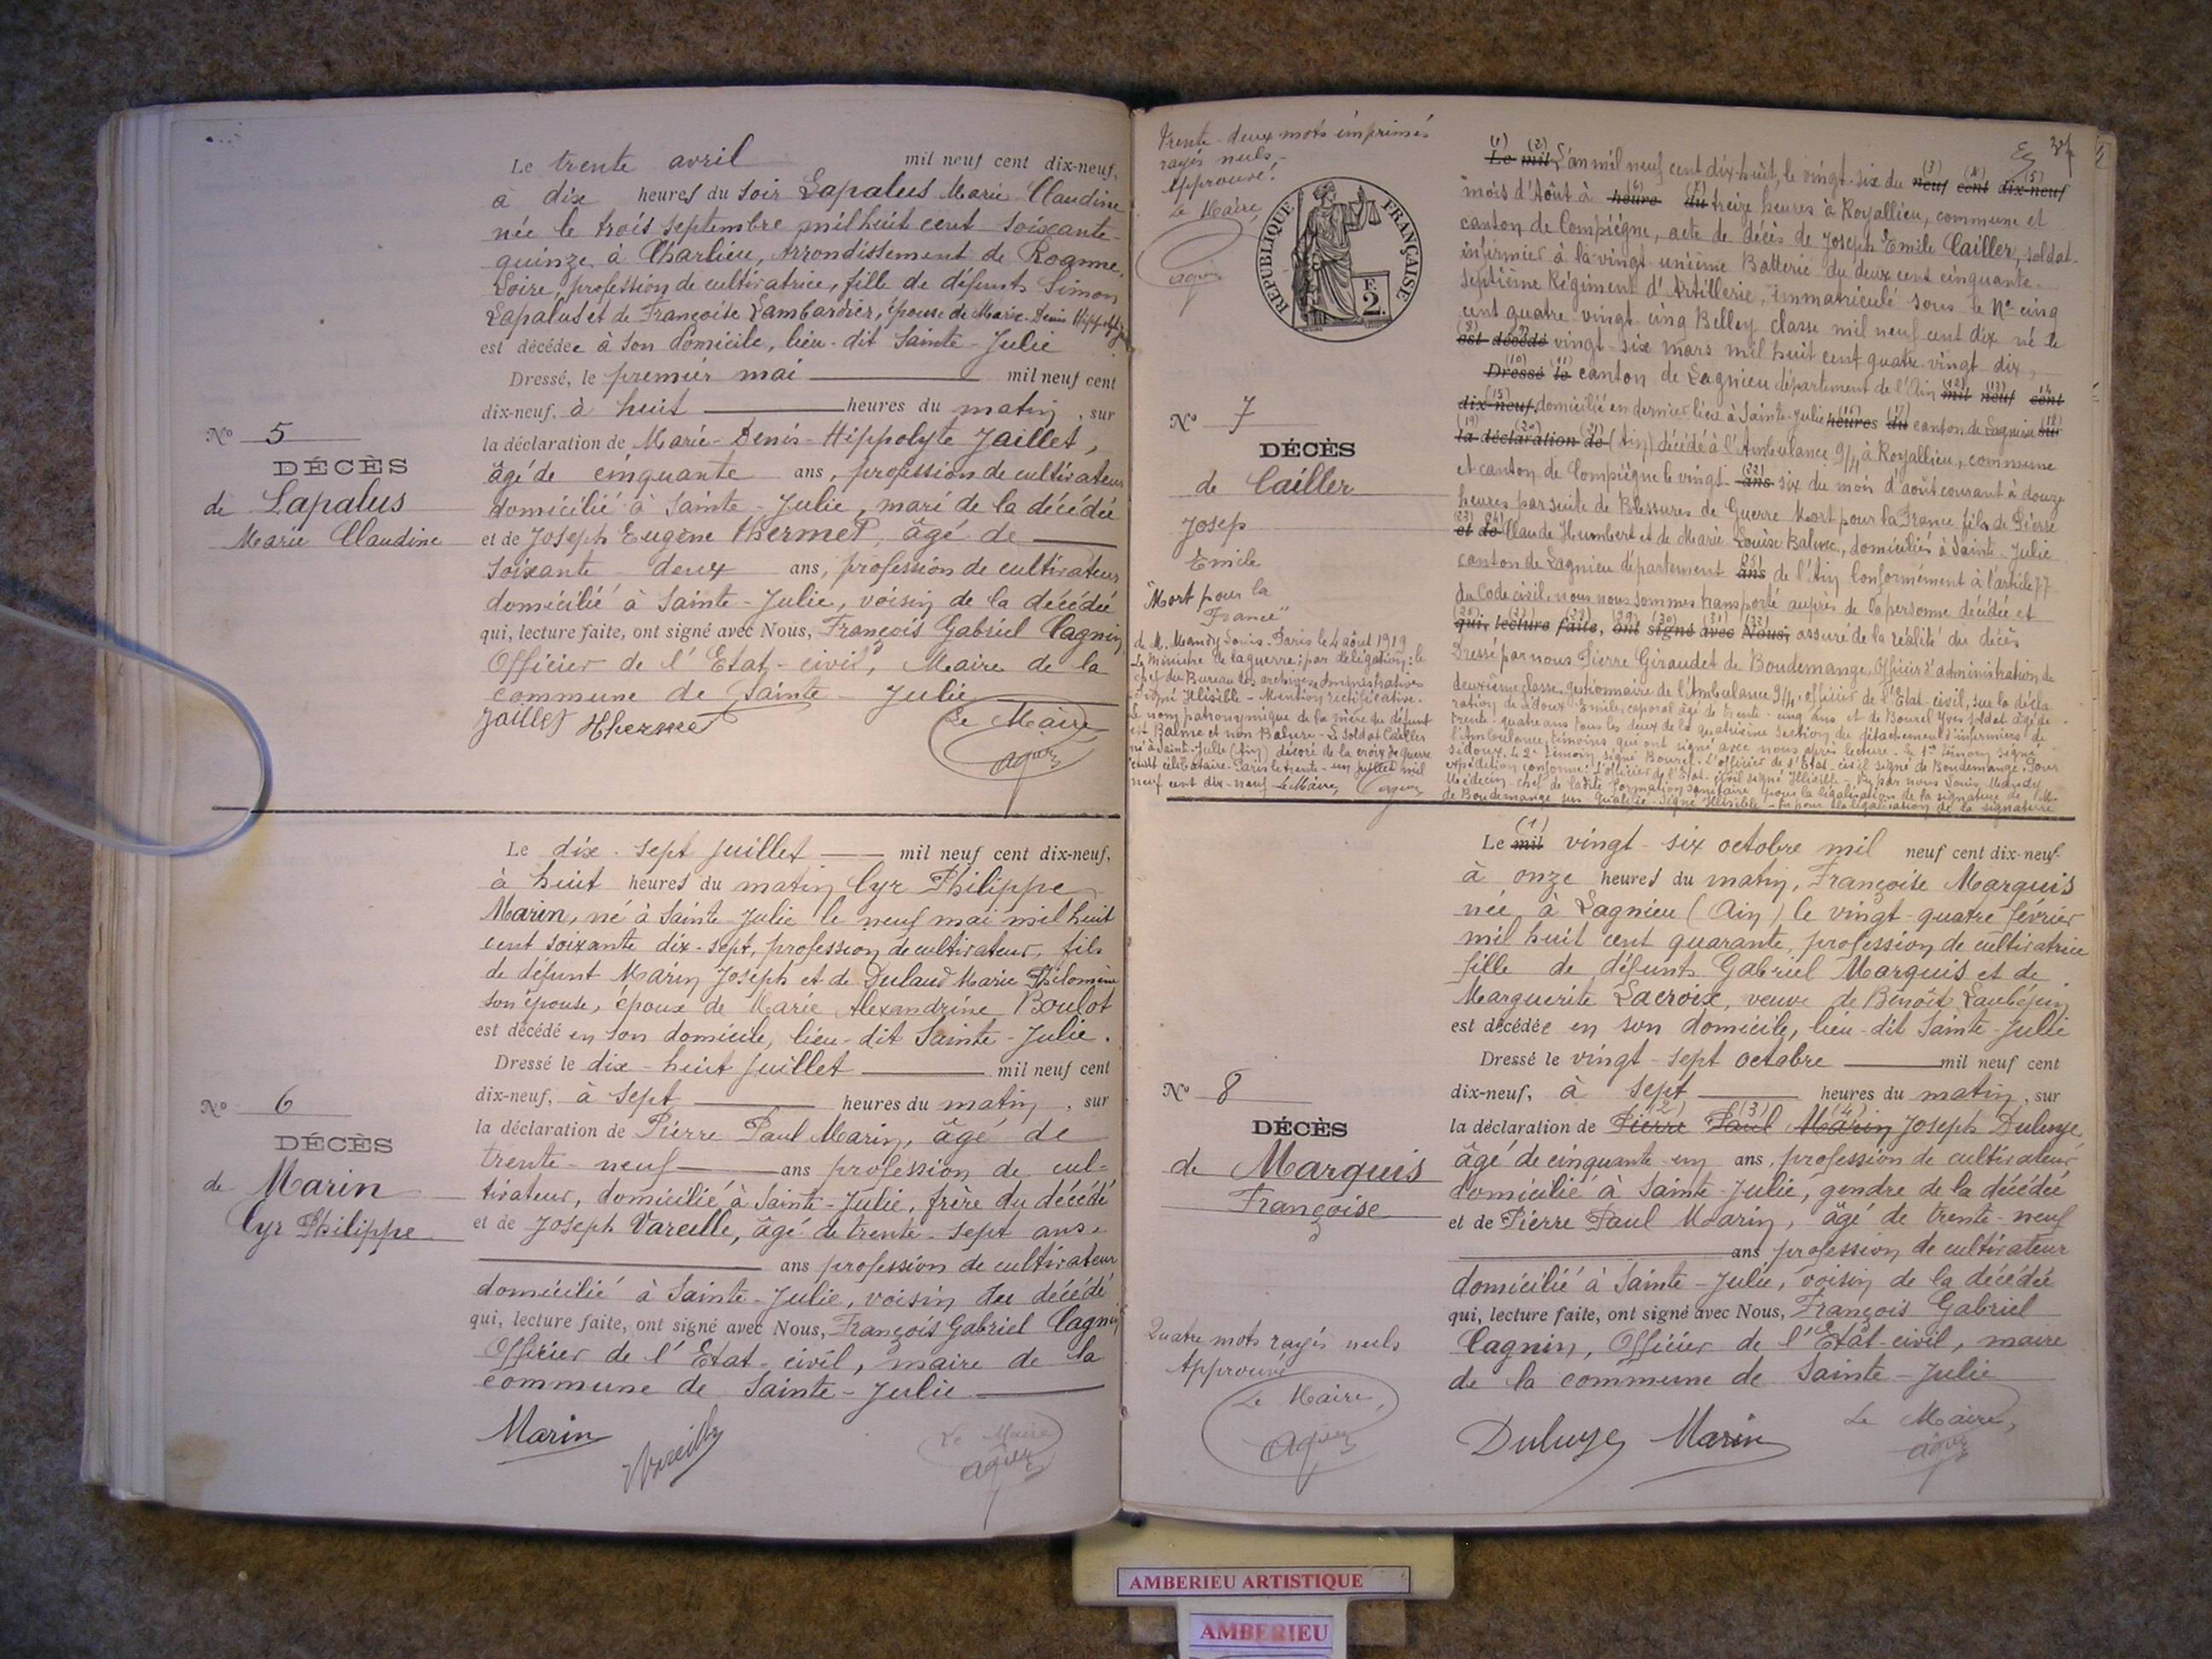 Le trente avril mil neuf cent dix-neuf,
à dix heures du soir Lapalus Marie Claudine
née le trois septembre mil huit cent soixante-
quinze à Charlieu, Arrondissement de Roanne,
Loire, profession de cultivatrice, fille de défunts Simon
Lapalus et de Françoise Lambardier, épouse de Marie-Denis Hippolyte
est décédée à son domicile, lieu-dit Sainte-Julie
Dressé, le premier mai mil neuf cent
dix-neuf, à huit heures du matin, sur
la déclaration de Marie-Denis-Hippolyte Jaillet,
âgé de cinquante ans, profession de cultivateur
domicilié à Sainte-Julie, mari de la décédée
et de Joseph Eugène Thermet, âgé de
soixante-deux ans, profession de cultivateur
domicilié à Sainte-Julie, voisin de la décédée
qui, lecture faite, ont signé avec Nous, François Gabriel Cagnin
Officier de l'Etat-civil, Maire de la
commune de Sainte-Julie
Jaillet Thermet Le Maire
Nº 5
DÉCÈS
de Lapalus
Marie Claudine
Le dix-sept juillet mil neuf cent dix-neuf,
à huit heures du matin Cyr Philippe
Marin, né à Sainte-Julie le neuf mai mil huit
cent soixante dix-sept, profession de cultivateur, fils
de défunt Marin Joseph et de Dulaud Marie Philomène
son épouse, époux de Marie Alexandrine Boulot
est décédé en son domicile, lieu-dit Sainte-Julie.
Dressé le dix-huit juillet mil neuf cent
dix-neuf, à sept heures du matin, sur
la déclaration de Pierre Paul Marin, âgé de
trente-neuf ans profession de cul-
tivateur, domicilié à Sainte-Julie, frère du décédé
et de Joseph Vareille, âgé de trente-sept ans
ans profession de cultivateur
domicilié à Sainte-Julie, voisin du décédé
qui, lecture faite, ont signé avec Nous, François Gabriel Cagnin
Officier de l'Etat-civil, maire de la
commune de Sainte-Julie
Marin Vareille Le Maire
Nº 6
DÉCÈS
de Marin
Cyr Philippe
Trente-deux mots imprimés
rayés nuls
Approuvé.
Le Maire
REPUBLIQUE FRANÇAISE
F.
2.
Nº 7
DÉCÈS
de Cailler
Josep
Emile
"Mort pour la
France"
de M. Mandy Louis. Paris le 4 août 1919
Le Ministre de la guerre; par délégation: le
chef du Bureau des archives Administratives
Signé Illisible - Mention rectificative.
Le nom patronymique de la mère du défunt
est Balme et non Balure - Le soldat Cailler
né à Sainte-Julie (Ain) décoré de la croix de guerre
était célibataire. Paris le trente-un juillet mil
neuf cent dix-neuf Le Maire,
(1) (2) (3) (4) (5)
Le mil L'an mil neuf cent dix-huit, le vingt-six du neuf cent dix-neuf
mois d'Août à heure du treize heures à Royallieu, commune et
canton de Compiègne, acte de décès de Joseph Emile Cailler, soldat-
infirmier à la vingt-unième Batterie du deux cent cinquante-
septième Régiment d'Artillerie, immatriculé sous le Nº cinq
cent quatre vingt cinq Belley classe mil neuf cent dix né le
est décédé vingt-six mars mil huit cent quatre-vingt dix,
Dressé le canton de Lagnieu département de l'Ain mil neuf cent
dix-neuf, domicilié en dernier lieu à Sainte-Julie heures du canton de Lagnieu sur
la déclaration de (Ain) décédé à l'Ambulance 9/4 à Royallieu, commune
et canton de Compiègne le vingt-ans six du mois d'août courant à douze
heures par suite de Blessures de Guerre Mort pour la France fils de Pierre
et de Claude Humbert et de Marie Louise Balure, domiciliés à Sainte-Julie
canton de Lagnieu département ans de l'Ain Conformément à l'article 77
du Code civil, nous nous sommes transporté auprès de la personne décédée et
qui, lecture faite, ont signé avec Nous, assuré de la réalité du décès
Dressé par nous Pierre Giraudet de Boudemange, Officier d'administration de
deuxième classe, gestionnaire de l'Ambulance 9/4, officier de l'Etat-civil, sur la décla-
ration de Sidoux Emile, caporal âgé de trente-cinq ans et de Bourel Yves soldat âgé de
trente-quatre ans tous les deux de la quatrième section du détachement d'infirmiers de
l'Ambulance, témoins qui ont signé avec nous après lecture - Le 1er témoin signé
Sidoux. Le 2e témoin, signé Bourel. L'officier de l'Etat-civil signé de Boudemange. Pour
expédition conforme: L'officier de l'Etat-civil signé Illisible - Vu par nous Louis Mandy
Médecin chef de ladite formation sanitaire pour la légalisation de la signature de M.
de Boudemange sus-qualifié - Signé Illisible - Vu pour la légalisation de la signature
(1)
Le mil vingt-six octobre mil neuf cent dix-neuf
à onze heures du matin, Françoise Marquis
née à Lagnieu (Ain) le vingt-quatre février
mil huit cent quarante, profession de cultivatrice
fille de défunts Gabriel Marquis et de
Marguerite Lacroix, veuve de Benoît Laubépin
est décédée en son domicile, lieu-dit Sainte-Julie
Dressé le vingt-sept octobre mil neuf cent
dix-neuf, à sept heures du matin, sur
la déclaration de Pierre Paul Marin Joseph Duluye,
âgé de cinquante-un ans, profession de cultivateur
domicilié à Sainte-Julie, gendre de la décédée
et de Pierre Paul Marin, âgé de trente-neuf
ans profession de cultivateur
domicilié à Sainte-Julie, voisin de la décédée
qui, lecture faite, ont signé avec Nous, François Gabriel
Cagnin, Officier de l'Etat-civil, maire
de la commune de Sainte-Julie
Duluye Marin Le Maire,
Nº 8
DÉCÈS
de Marquis
Françoise
Quatre mots rayés nuls
Approuvé
Le Maire,
AMBERIEU ARTISTIQUE
AMBERIEU